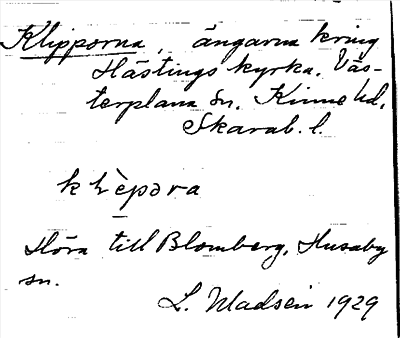 Klipporna, ängarna kring
Hästings kyrka. Väs-
terplana sn. Kinne hd.
Skarab. l.
Höra till Blomberg, Husaby
sn.
L. Madsen 1929